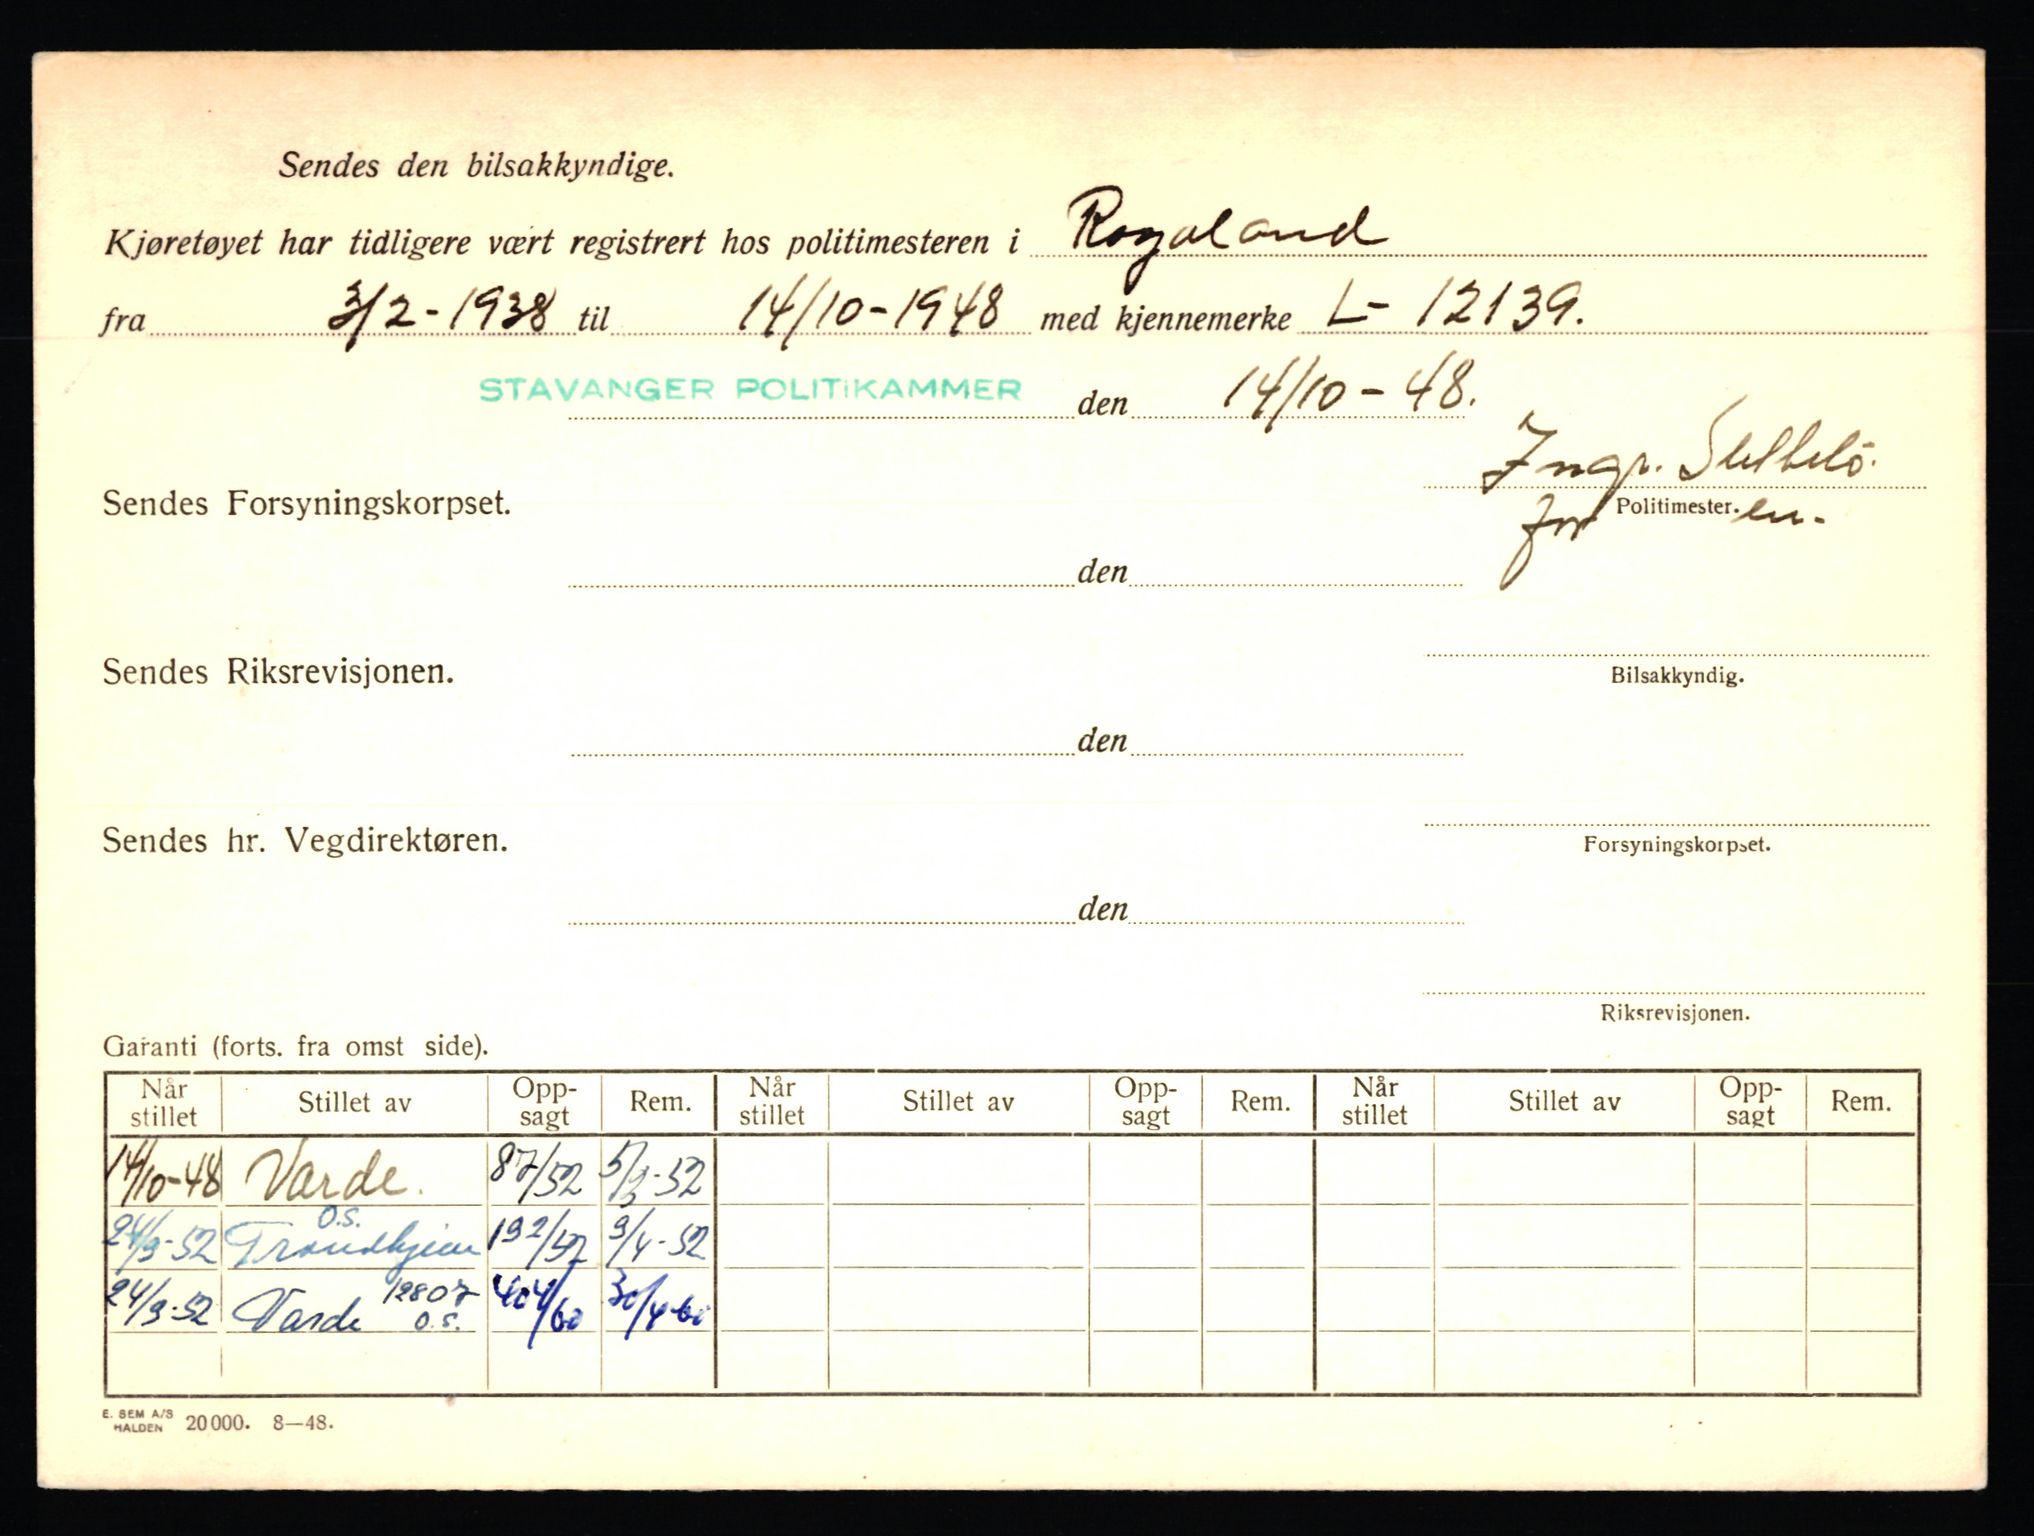 Sendes den bilsakkyndige.
Kjøretøyet har tidligere vært registrert hos politimesteren i Rogaland
fra 3/2-1938 til 14/10-1948 med kjennemerke L- 12139.
STAVANGER POLITIKAMMER den 14/10-48.
Ingr.
Sendes Forsyningskorpset.
for Politimester.en-
den
Sendes Riksrevisjonen.
Bilsakkyndig.
den
Sendes hr. Vegdirektøren.
Forsyningskorpset.
den
Riksrevisjonen.
Garanti (forts. fra omst side).
Når stillet Stillet av Opp-sagt Rem. Når stillet Stillet av Opp-sagt Rem. Når stillet Stillet av Opp-sagt Rem.
14/10-48 Varde. 87/52 5/3-52
24/3-52 Trondhjem o.s. 192/52 3/4-52
24/3-52 Varde 12807 o.s. 404/60 30/4-60
E. SEM A/S
HALDEN 20000. 8—48.